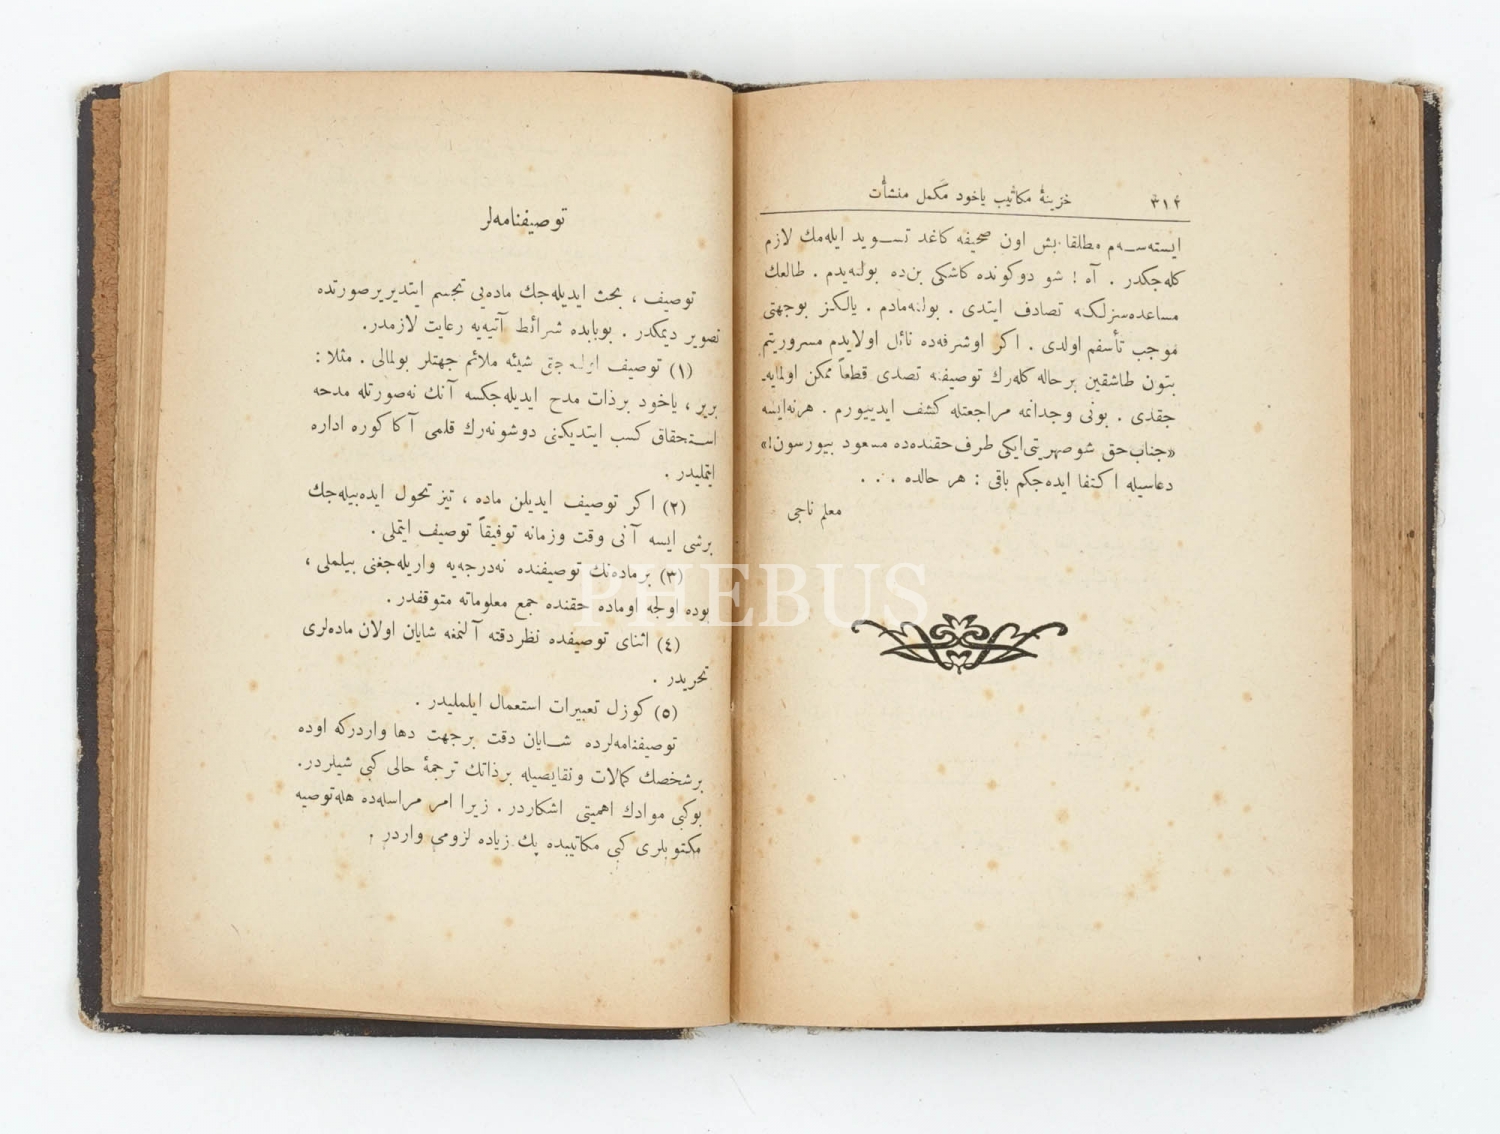 ٣١٤ خزینهٔ مکاتیب یاخود مکمل منشأت
ایسته‌سه‌م مطلقا بش اون صحیفه کاغد تسوید ایله‌مك لازم
کله‌جکدر . آه ! شو دوکونده کاشکی بن‌ده بولنه‌یدم . طالعك
مساعده‌سزلکنه تصادف ایتدی . بولنه‌مادم . یالکز بوجهتی
موجب تأسفم اولدی . اکر اوشرفه‌ده نائل اولایدم مسروریتم
بتون طاشقین برحاله کله‌رك توصیفنه تصدی قطعاً ممکن اولمایه‌
جقدی . بونی وجدانمه مراجعتله کشف ایدییورم . هرنه‌ایسه
«جناب حق شوصهریتی ایکی طرف حقنده‌ده مسعود بیورسون!»
دعاسیله اکتفا ایده‌جکم باقی : هر حالده . . .
معلم ناجی
توصیفنامه‌لر
توصیف ، بحث ایدیله‌جك ماده‌یی تجسم ایتدیر برصورتده
تصویر دیمکدر . بوبابده شرائط آتیه‌یه رعایت لازمدر.
(١) توصیف اولنه‌جق شیئه ملائم جهتلر بولمالی . مثلا :
بریر ، یاخود برذات مدح ایدیله‌جکسه آنك نه‌صورتله مدحه
استحقاق کسب ایتدیکنی دوشونه‌رك قلمی آکا کوره اداره
ایتملیدر .
(٢) اکر توصیف ایدیلن ماده ، تیز تحول ایده‌بیله‌جك
برشی ایسه آنی وقت وزمانه توفیقاً توصیف ایتملی .
(٣) برماده‌نك توصیفنده نه‌درجه‌یه واریله‌جغنی بیلملی ،
بوده اولجه اوماده حقنده جمع معلوماته متوقفدر .
(٤) اثنای توصیفده نظردقته آلنمغه شایان اولان ماده‌لری
تحریدر .
(٥) کوزل تعبیرات استعمال ایلملیدر .
توصیفنامه‌لرده شایان دقت برجهت دها واردرکه اوده
برشخصك کمالات ونقایصیله برذاتك ترجمهٔ حالی کبی شیلردر.
بوکبی موادك اهمیتی اشکاردر . زیرا امر مراسله‌ده هله‌توصیه
مکتوبلری کبی مکاتیبده پك زیاده لزومی واردر .
PHEBUS